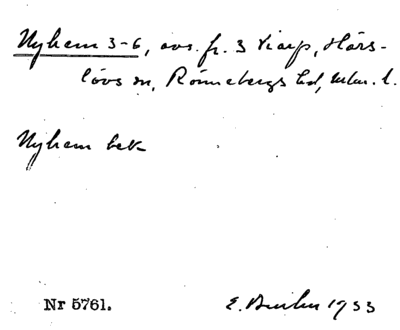 Nyhem 3-6, avs. fr. 3 Tiarp, Härs-
lövs sn, Rönnebergs hd, Mlm. l.
Nyhem bek
Nr 5761. 1933